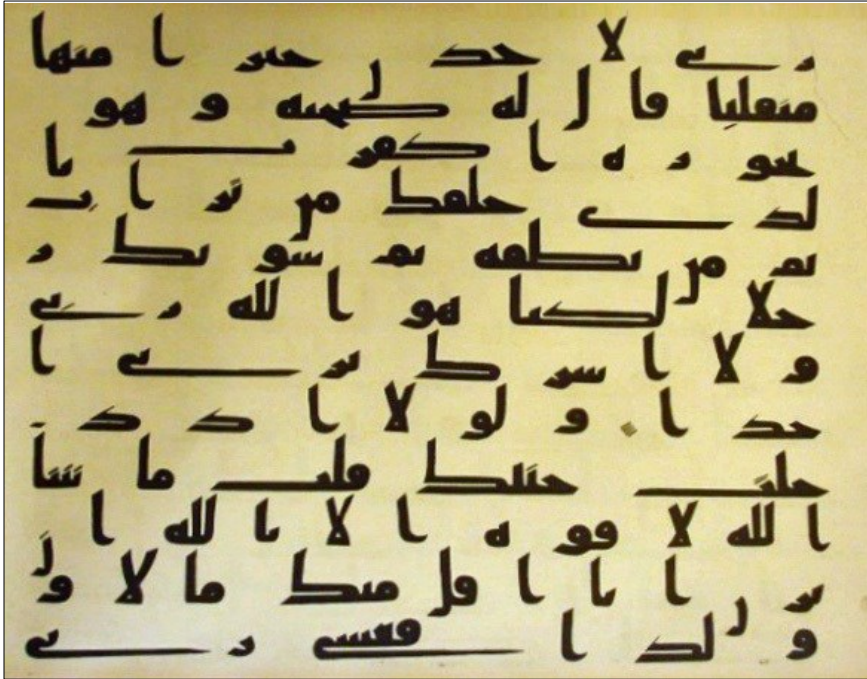 ربي لاجدن خيرا منها
منقلبا قال له صحبه وهو
يحوره اكفرت با
لذي خلقك من تراب
ثم من نطفة ثم سويك ر
جلا لكنا هو الله ربي
ولا اشرك بربي ا
حدا ولولا اذ د
خلت جنتك قلت ما شا
الله لا قوة الا بالله ان
ترن انا اقل منك مالا و
ولدا فعسى ربي